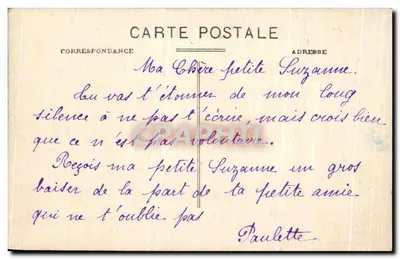 CARTE POSTALE
CORRESPONDANCE ADRESSE
Ma Chère petite Suzanne.
Tu vas t'étonner de mon long
silence à ne pas t'écrire, mais crois bien
que ce n'est pas volontaire.
Reçois ma petite Suzanne un gros
baiser de la part de la petite amie
qui ne t'oublie pas
Paulette.